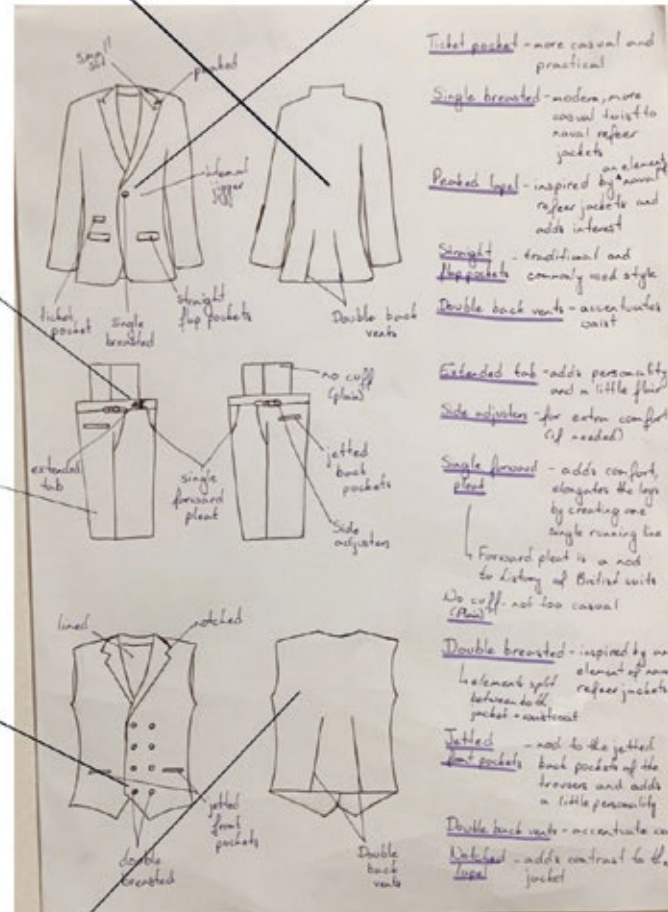 small
slit
peaked
internal
jigger
ticket
pocket
single
breasted
straight
flap pockets
Double back
vents
no cuff
(plain)
extended
tab
single
forward
pleat
jetted
back
pockets
Side
adjusters
lined
notched
jetted
front
pockets
double
breasted
Double
back
vents
Ticket pocket - more casual and
practical
Single breasted - modern, more
casual twist to
naval refeer
jackets
an element
Peaked lapel - inspired by naval
refeer jackets and
adds interest
Straight - traditional and
flap pockets commonly used style
Double back vents - accentuates
waist
Extended tab - adds personality
and a little flair
Side adjusters - for extra comfort
(if needed)
Single forward - adds comfort,
pleat elongates the legs
by creating one
single running line
Forward pleat is a nod
to history of British suits
No cuff - not too casual
(Plain)
Double breasted - inspired by an
element of
elements split refeer jackets
between both
jacket + waistcoat
Jetted - nod to the jetted
front pockets back pockets of the
trousers and adds
a little personality
Double back vents - accentuate
Notched - adds contrast to the
lapel jacket